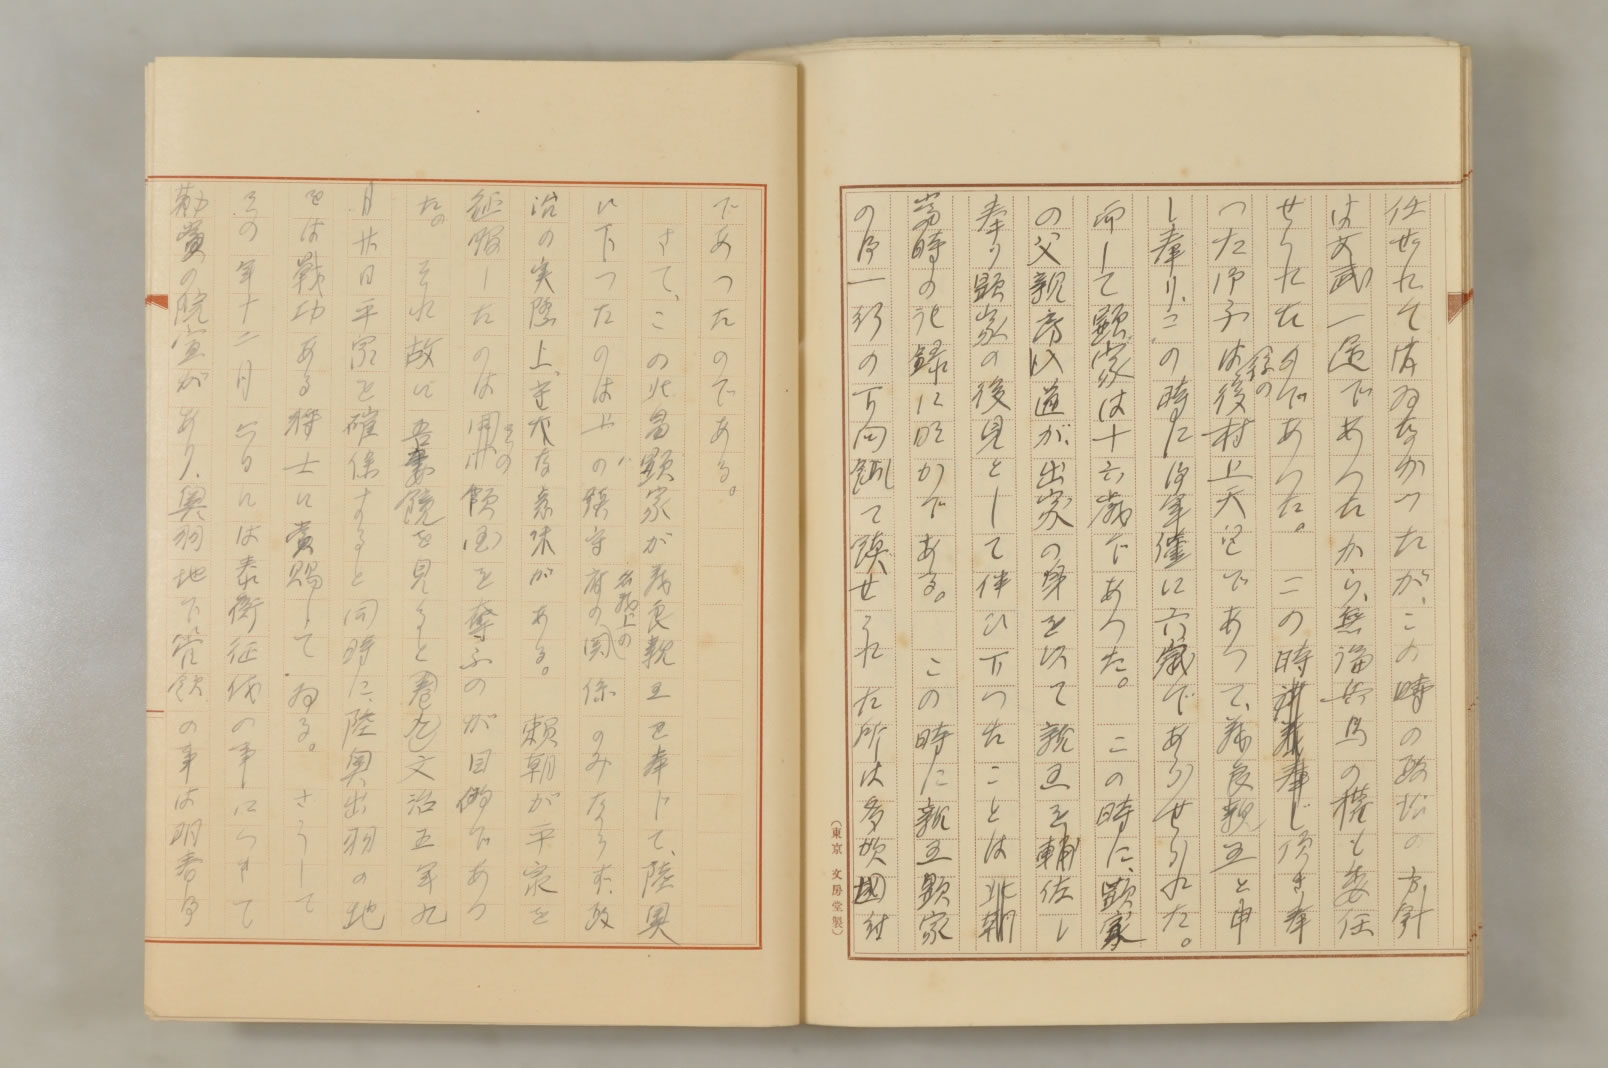 任せられては居なかつたが、この時の政治の方針
は文武一途であつたから、無論兵馬の権も委任
せられたのであつた。 この時奉じ頂き奉
つた御子は後村上天皇であつて、義良親王と申
し奉り、この時には御年僅に六歳であらせられた。
而して顕家は十六歳であつた。 この時に、顕家
の父親房入道が、出家の身を以て親王を輔佐し
奉り顕家の後見として伴ひ下つたことは北朝
当時の記録に明かである。 この時に親王顕家
の御一行の下向
であつたのである。
さて、この北畠顕家が義良親王を奉じて、陸奥
に下つたのは上の鎮守府の名義上の関係のみならず、政
治の実際上、重大な意味がある。 頼朝が平泉を
征服したのはその領国を奪ふのが目的であつ
た。 それ故に吾妻鏡を見ると文治五年九
月廿日平泉を確保すると同時に、陸奥出羽の地
をは戦功ある将士に賞賜してゐる。 さうして
その年十二月六日には泰衡征伐の事につきて
勅賞の院宣があり、奥羽地下管領の事は明春御
(東京 文房堂製)